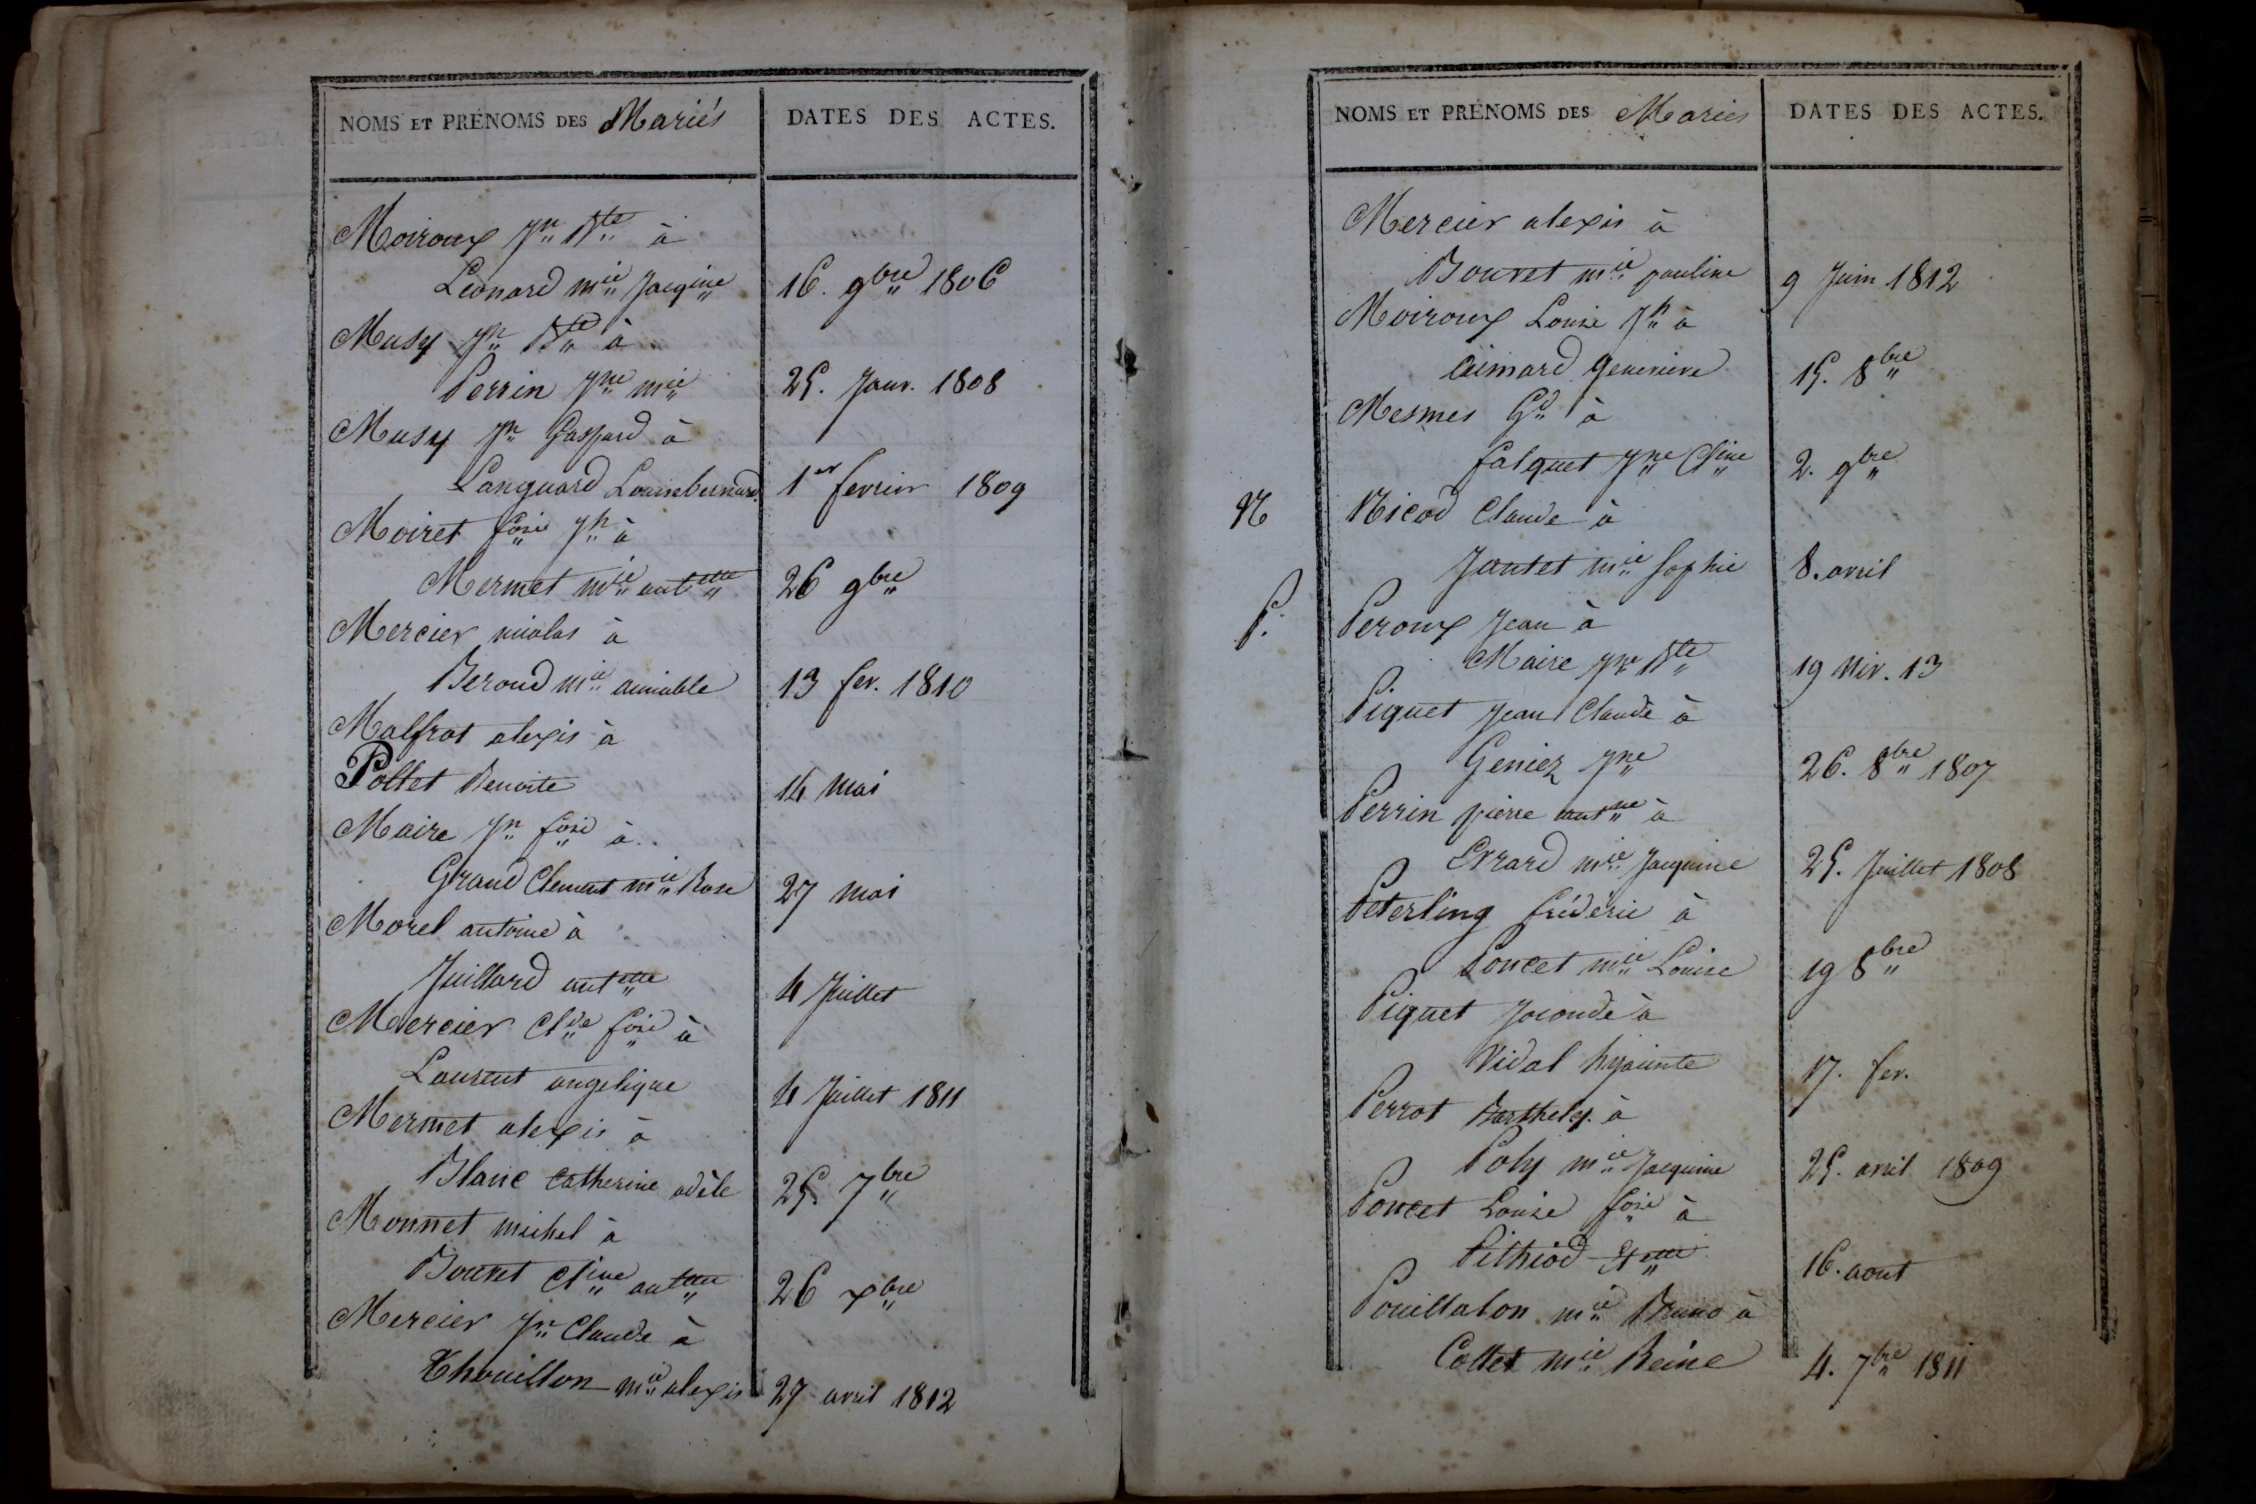 NOMS ET PRÉNOMS DES Mariés DATES DES ACTES.
Moiroux Jn Bte à
Léonard mie Jacqine 16. 9bre 1806
Musy Jn Bte à
Perrin Jne mie 25. Janv. 1808
Musy Jn Gaspard à
Languard Louise bernard. 1er fevrier 1809
Moiret fois Jh à
Mermet mie antette 26 9bre
Mercier nicolas à
Beroud mie aimable 13 fev. 1810
Malfrot alexis à
Pollet Benoite 14 mai
Maire Jn fois à
Grand Clement mie Rose 27 mai
Morel antoine à
Juillard antette 4 Juillet
Mercier Clde fois à
Laurent angelique 4 Juillet 1811
Mermet alexis à
Blanc Catherine adèle 25. 7bre
Monnet michel à
Bouvet Cline antette 26 xbre
Mercier Jn Claude à
Thouillon mie alexis 27 avril 1812
NOMS ET PRÉNOMS DES Mariés DATES DES ACTES.
Mercier alexis à
Bouvet mie pauline 9 Juin 1812
Moiroux Louis Jh à
Aimard genevieve 15. 8bre
Mesmes Gd à
falquet Jne Cline 2. 9bre
N Nicod Claude à
Jantet mie Sophie 8. avril
P. Peroux Jean à
Maire Jne Bte 19 Niv. 13
Piquet Jean Claude à
Geniez Jne 26. 8bre 1807
Perrin pierre antne à
Evrard mie Jacquine 25. Juillet 1808
Peterling fréderic à
Poncet mie Louise 19 8bre
Piquet Joconde à
Vidal hyacinte 17. fev.
Perrot Barthely. à
Poly mie Jacquine 25. avril 1809
Poncet Louise fois à
Pithiod 16. aout
Pouillaton mie Bruno à
Collet mie Reine 4. 7bre 1811